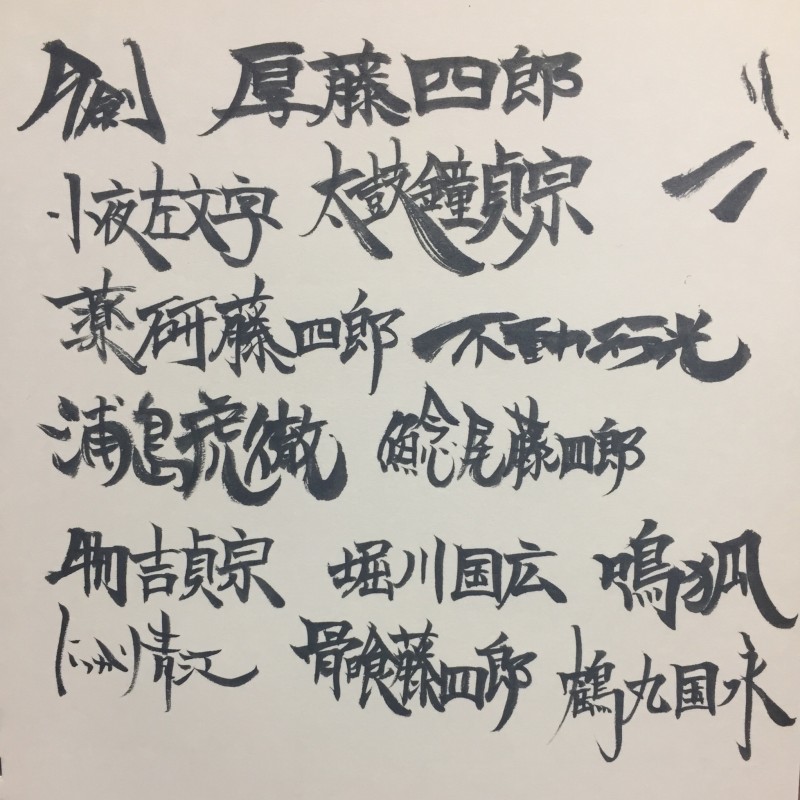 厚藤四郎
小夜左文字 太鼓鐘貞宗
薬研藤四郎 不動行光
浦島虎徹 鯰尾藤四郎
物吉貞宗 堀川国広 鳴狐
にっかり青江 骨喰藤四郎 鶴丸国永